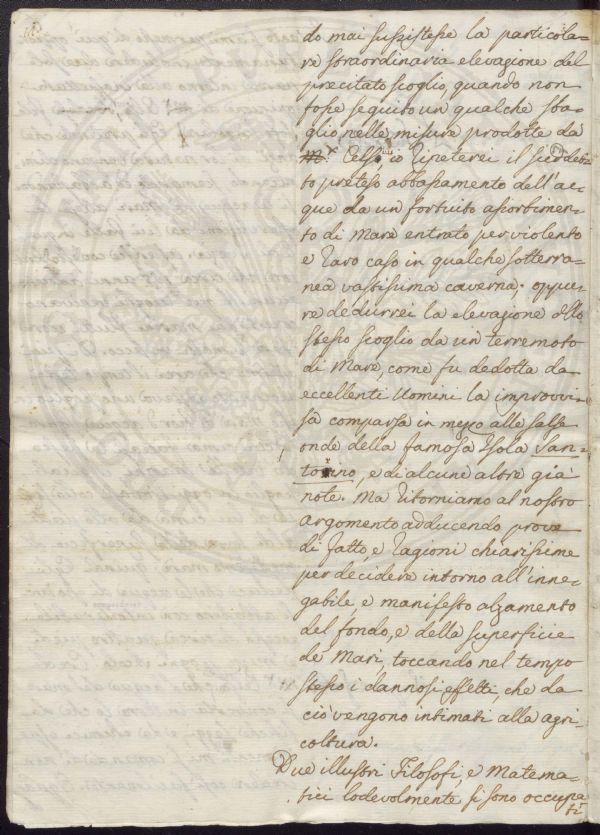 do mai sussistesse la particola-
re straordinaria elevazione del
precitato scoglio, quando non
fosse seguito un qualche sba-
glio nelle misure prodotte da
M.r Celsio io ripeterei il suddet-
to preteso abbassamento dell'ac-
que da un fortuito assorbimen-
to di Mare entrato per violento
e raro caso in qualche sotterra-
nea vastissima caverna; oppu-
re dedurrei la elevazione dello
stesso scoglio da un terremoto
di Mare, come fu dedotta da
eccellenti Uomini la improvvi-
sa comparsa in mezzo alle salse
onde della famosa Isola San-
torino, e di alcune altre già
note. Ma ritorniamo al nostro
argomento adducendo prove
di fatto, e ragioni chiarissime
per decidere intorno all'inne-
gabile, e manifesto alzamento
del fondo, e della superficie
de Mari, toccando nel tempo
stesso i dannosi effetti, che da
ciò vengono intimati alla agri-
coltura.
Due illustri Filosofi, e Matema-
tici lodevolmente si sono occupa-
ti